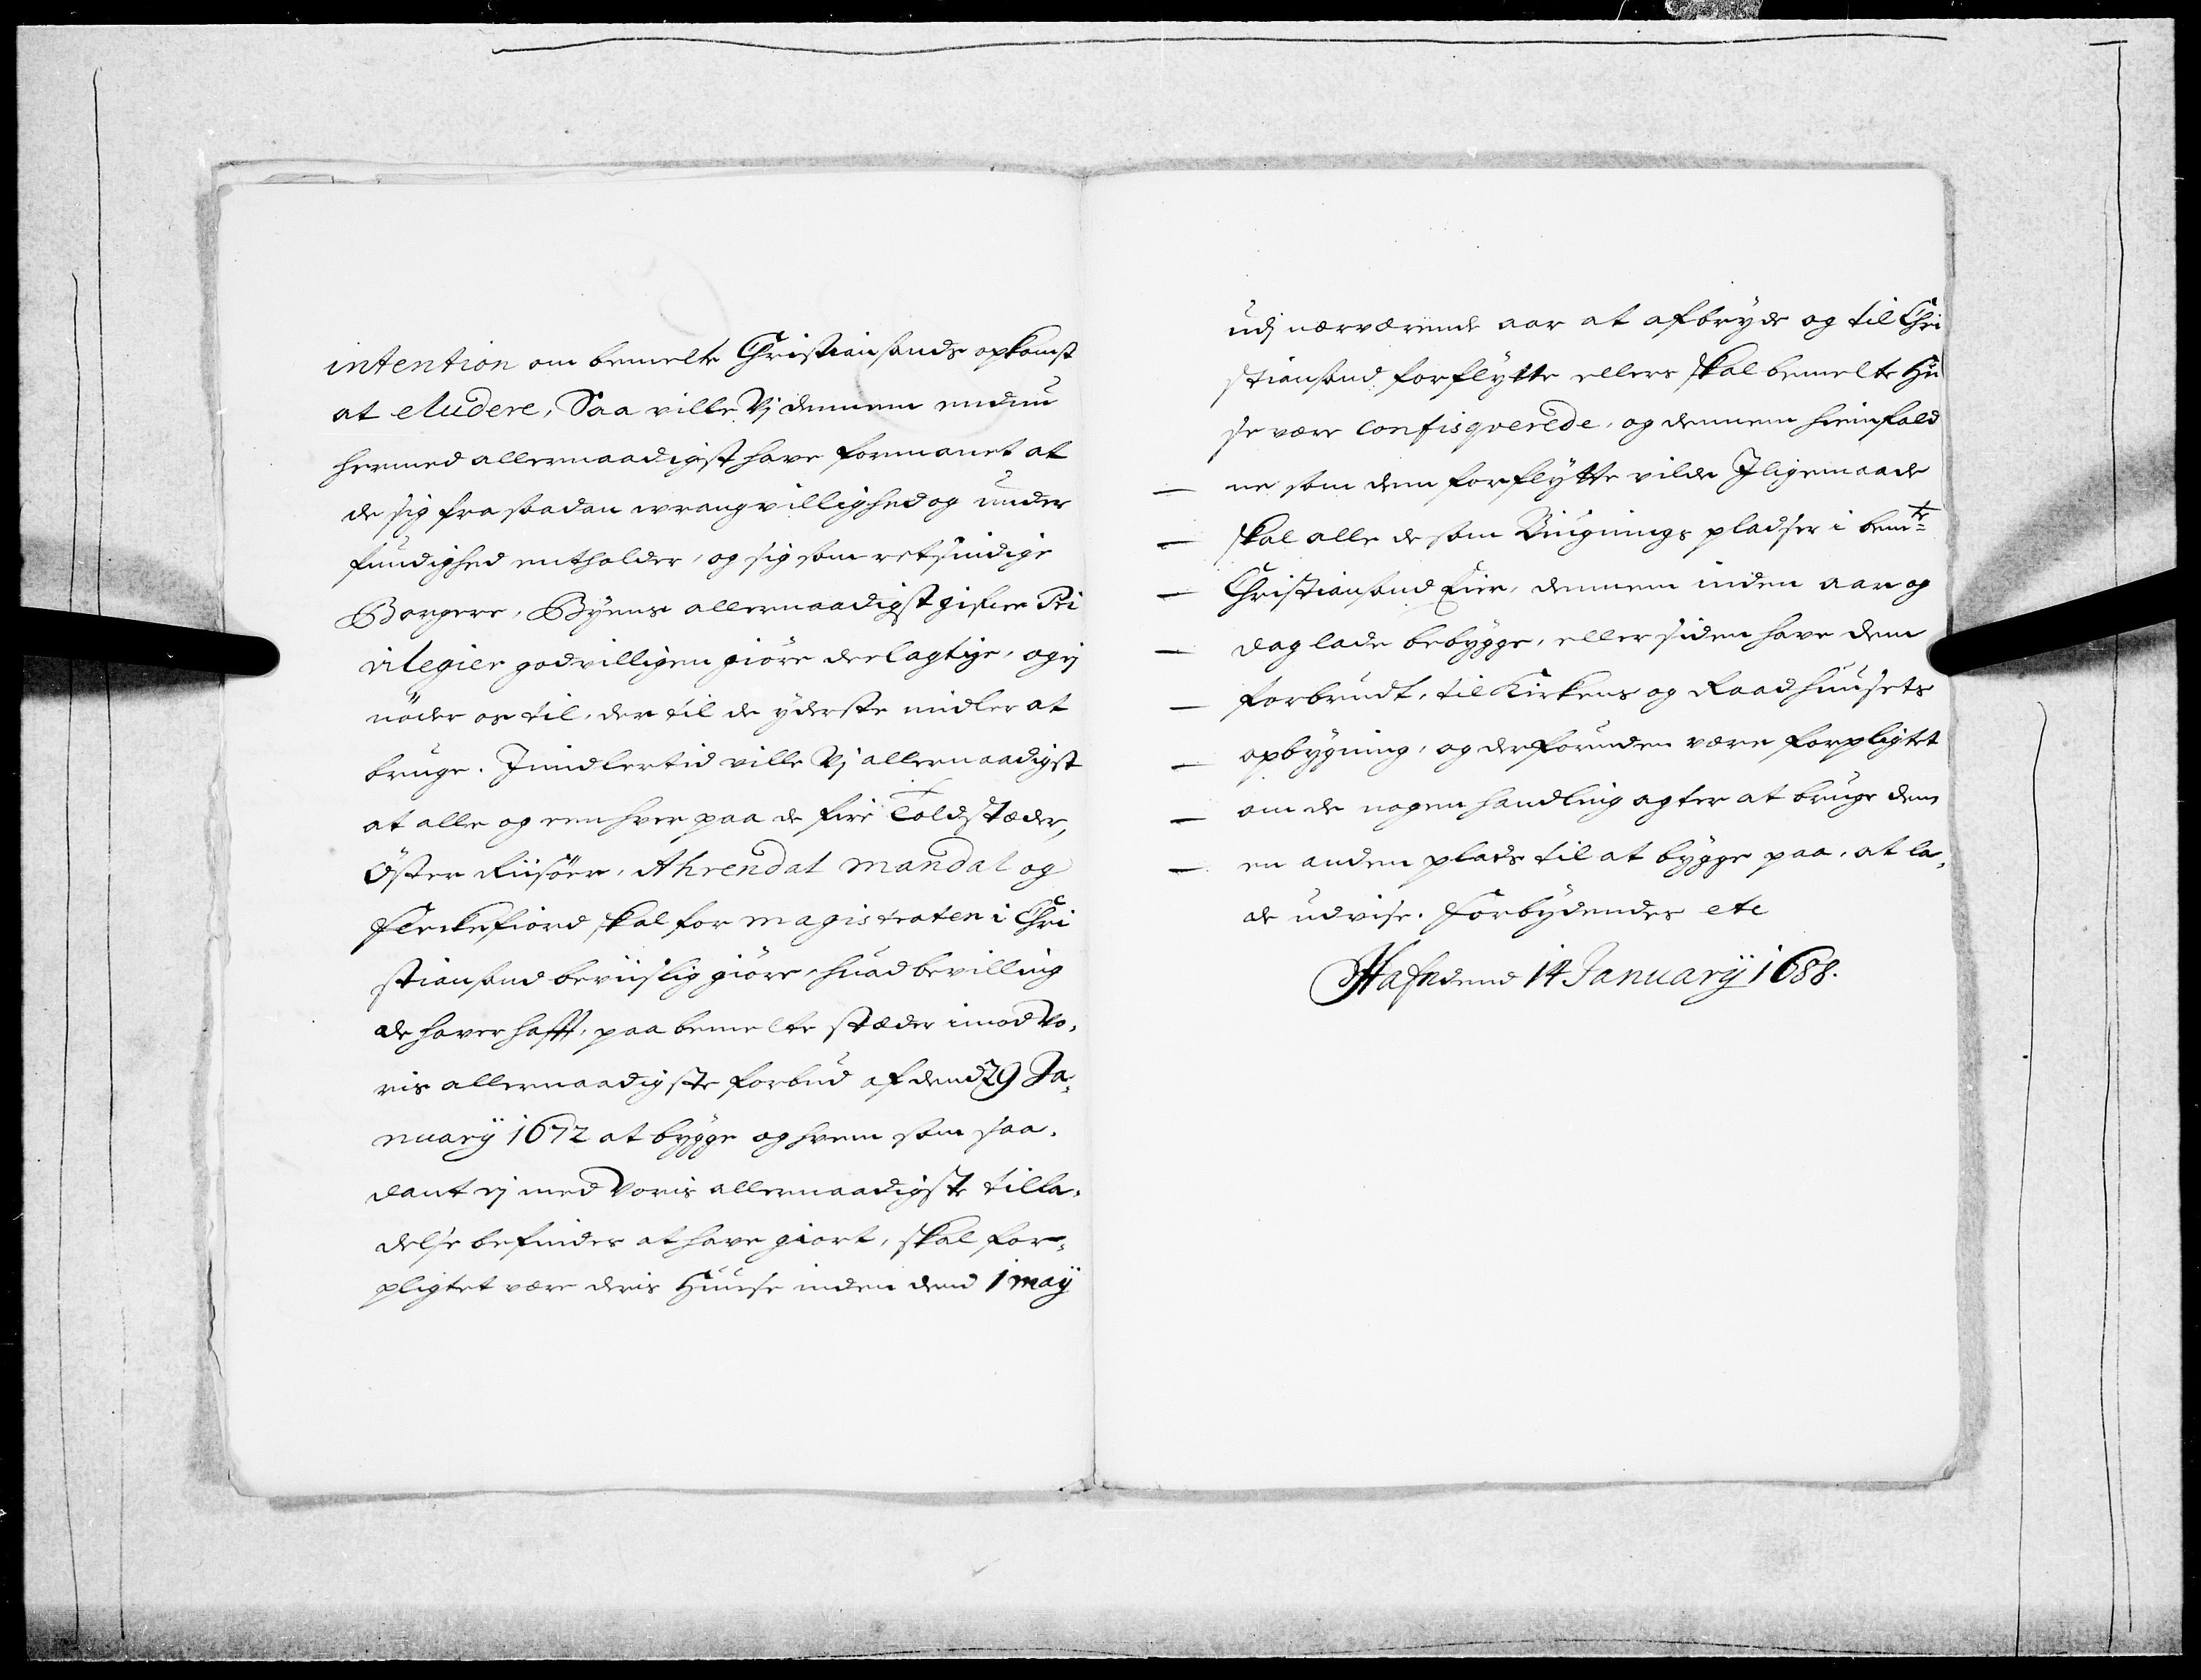 intention om bemelte Christiansands opkomst
at eludere, Saa ville Vj dennem endnu
hermed allernaadigst have formanet at
de sig fra saadan wrangvillighed og under
fundighed entholder, og sig som retsindige
Borgere, Byens allernaadigst gifne Pri
vilegier godvilligen giöre deelagtige, og ej
nöder os til, der til de yderste midler at
bruge. Jmidlertid ville Vj allernaadigst
at alle og een hver paa de fire Toldstæder,
Öster Riisöer, Ahrendal Mandal og
Fleckefiord skal for magistraten i Chri
stiansand beviislig giöre, huad bevilling
de haver hafft, paa bemelte stæder imod Vo,
ris allernaadigste forbud af dend 29 Ja,
nuarÿ 1672 at bygge og hvem som saa,
dant ej med Voris allernaadigste tilla,
delse befindes at have giort, skal for,
pligtet være deris Huuse inden dend 1 maÿ
udj nærværende aar at afbryde og til Chri
stiansand forflytte ellers skal bemelte Hu
se være Confisqverede, og dennem hiemfald
ne som dem forflytte vilde Jligemaade
skal alle de som Bugnings pladser i bem.te
Christiansand Eier, dennem inden aar og
dag lade bebygge, eller siden have dem
forbrudt, til Kirkens og Raadhuusets
opbygning, og derforuden være forpligtet
om de nogen handling agter at bruge dem
en anden plads til at bygge paa, at la,
de udvise. Forbydendes etc
Hafn dend 14 Januarÿ 1688.